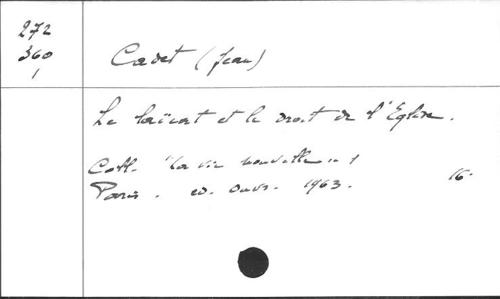 272
360
1
Cadet (Jean)
Le laïcat et le droit de l'Eglise.
Coll. "La vie nouvelle" 1
Paris. ed. Ouvr. 1963. 16°